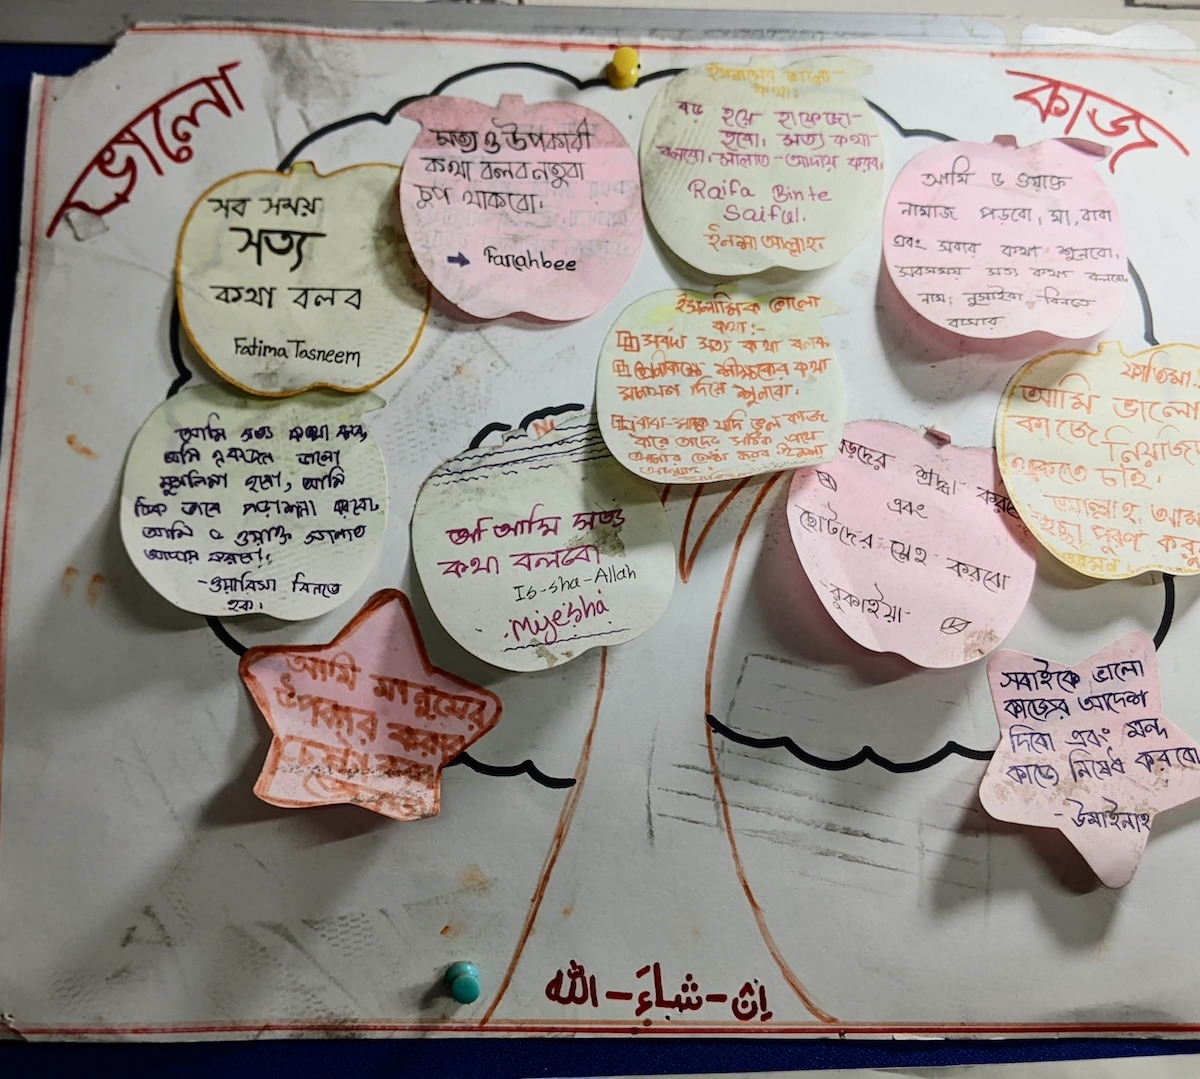 ভালো
কাজ
সব সময়
সত্য
কথা বলব
Fatima Tasneem
সত্য ও উপকারী
কথা বলব নতুবা
চুপ থাকবো।
Farahbee
ইসলামের ভালো
কথা:
বড় হয়ে হাফেজা
হবো, সত্য কথা
বলবো, সালাত-আদায় করব,
Raifa Binte
Saiful.
ইনশা আল্লাহ
আমি ৫ ওয়াক্ত
নামাজ পড়বো, মা, বাবা
এবং সবার কথা শুনবো,
সবসময় সত্য কথা বলবো,
নাম: নুসাইবা বিনতে
বাসার
ইসলামিক ভালো
কথা:-
সর্বদা সত্য কথা বলব
শিক্ষকের কথা
মনযোগ দিয়ে শুনবো.
বাবা- যদি ভুল কাজ
করে তাদের সঠিক পথে
আনার চেষ্টা করব ইনশা
ফাতিমা
আমি ভালো
কাজে নিয়োজিত
চাই.
আল্লাহ আমার
ইচ্ছা পূরণ করুন
আমি সত্য কথা বলব,
আমি একজন ভালো
মুসলিমা হবো, আমি
ঠিক ভাবে পড়াশুনা করবো,
আমি ৫ ওয়াক্ত সালাত
আদায় করবো।
-ওয়ারিসা বিনতে
হক।
আমি সত্য
কথা বলবো
Is-sha-Allah
Miyesha
বড়দের শ্রদ্ধা করবো
এবং
ছোটদের স্নেহ করবো
-রুকাইয়া-
আমি মানুষের
উপকার করার
সবাইকে ভালো
কাজের আদেশ
দিবো এবং মন্দ
কাজে নিষেধ করবো
- উমাইনাহ
إن-شاءَ-الله